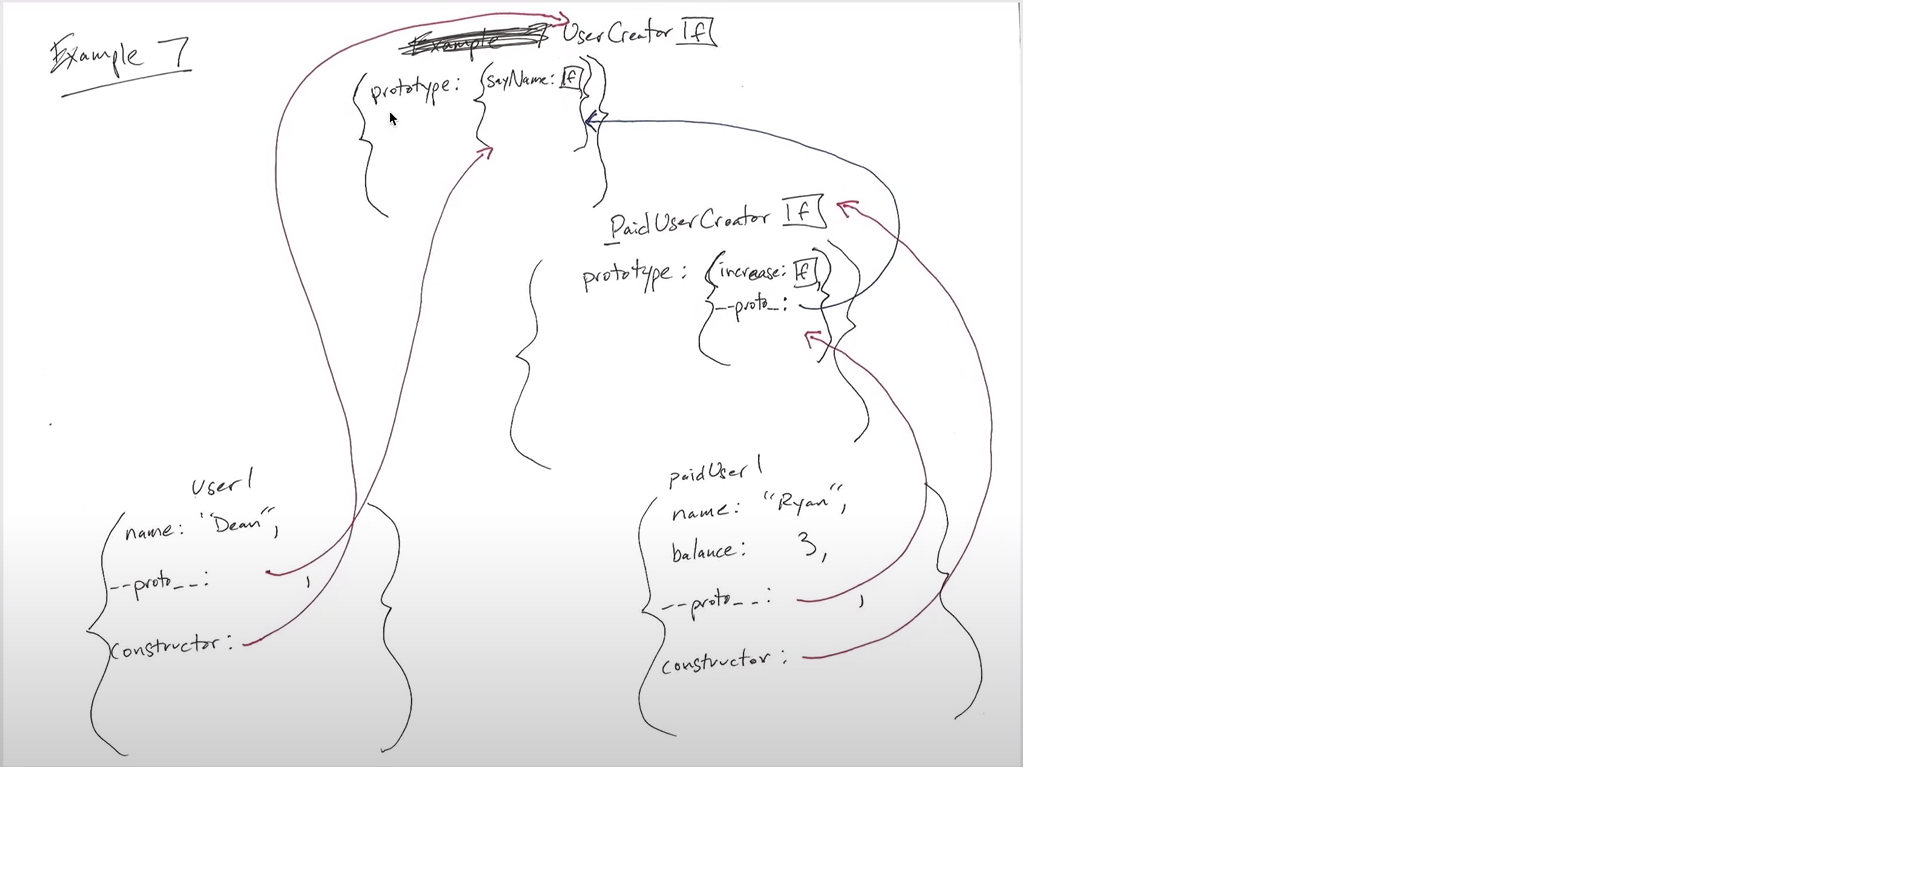 Example 7
Example 7 UserCreator f
{prototype: {sayName: f}}
PaidUserCreator f
{prototype: {increase: f,
--proto_: }}
user1
{name: "Dean",
--proto--: ,
constructor: }
paidUser1
{name: "Ryan",
balance: 3,
--proto--: ,
constructor: }